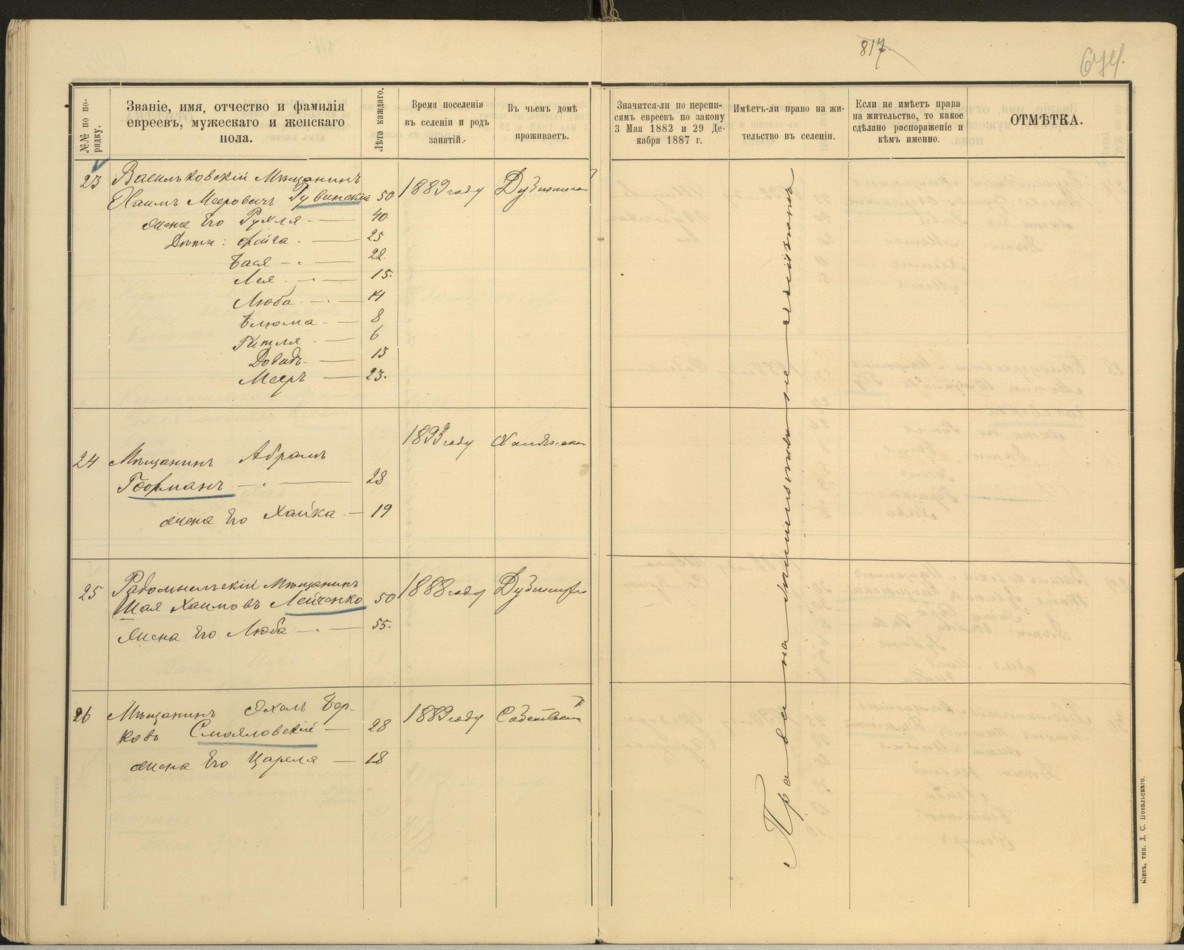 817
674.
№№ по по-
рядку.
Званіе, имя, отчество и фамилія
евреевъ, мужескаго и женскаго
пола.
Лѣта каждаго.
Время поселенія
въ селеніи и родъ
занятій.
Въ чьемъ домѣ
проживаетъ.
Значится-ли по перепи-
сямъ евреевъ по закону
3 Мая 1882 и 29 Де-
кабря 1887 г.
Имѣетъ-ли право на жи-
тельство въ селеніи.
Если не имѣетъ права
на жительство, то какое
сдѣлано распоряженіе и
кѣмъ именно.
ОТМѢТКА.
23 Васильковскій Мѣщанинъ
Хаимъ Мееровичъ Рувинскій 50 1889 году
жена Его Рухля 40
Дѣти: 25
Бася 22
Лея 15.
Люба 14
Блюма 8
Гитля 6
Довидъ 13
Мееръ 23.
24 Мѣщанинъ Абрамъ 1893 году
28
жена Его Хайка 19
25 Радомысльскій Мѣщанинъ
Шая Хаимовъ Лейченко 50 1888 году
Жена Его Люба 55.
26 Мѣщанинъ Бер-
ковъ Смоляловскій 28 1889 году
жена Его 18
Права на жительство не
Кіевъ, тип. Д. С. Повальскаго.